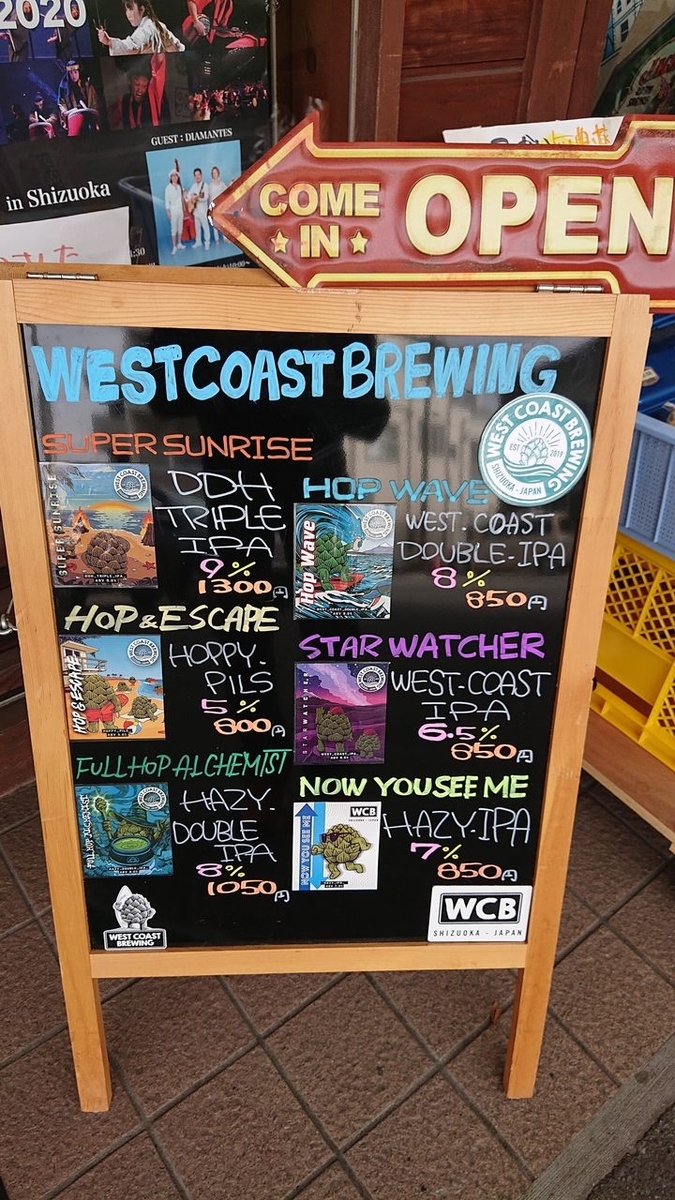 2020
GUEST : DIAMANTES
in Shizuoka
COME
IN
OPEN
WESTCOAST BREWING
WEST COAST BREWING
EST 2019
SHIZUOKA - JAPAN
SUPER SUNRISE
SUPER SUNRISE
DDH
TRIPLE
IPA
9%
1300円
HOP WAVE
Hop Wave
WEST.COAST
DOUBLE-IPA
8%
850円
HOP & ESCAPE
HOP & ESCAPE
HOPPY.
PILS
5%
800円
STAR WATCHER
STAR WATCHER
WEST-COAST
IPA
6.5%
850円
FULLHOP ALCHEMIST
FULL HOP ALCHEMIST
HAZY.
DOUBLE
IPA
8%
1050円
NOW YOU SEE ME
NOW YOU SEE ME
WCB
HAZY.IPA
7%
850円
WEST COAST
BREWING
WCB
SHIZUOKA - JAPAN